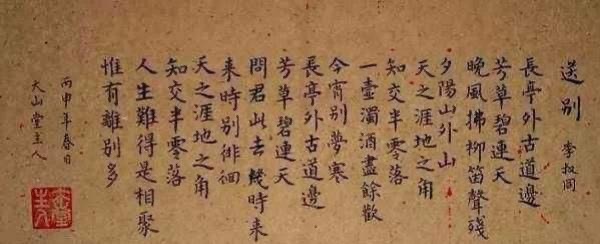 送別 李叔同
長亭外古道邊
芳草碧連天
晚風拂柳笛聲殘
夕陽山外山
天之涯地之角
知交半零落
一壺濁酒盡餘歡
今宵別夢寒
長亭外古道邊
芳草碧連天
問君此去幾時來
來時別徘徊
天之涯地之角
知交半零落
人生難得是相聚
惟有離別多
丙申年春日
大山堂主人